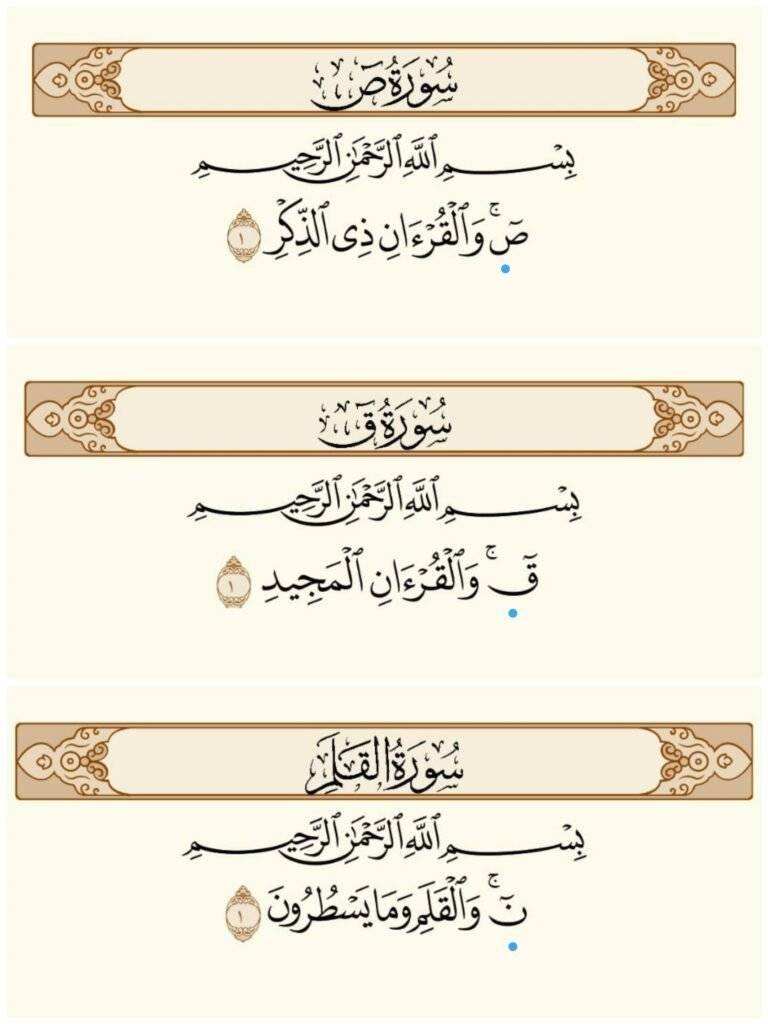 سُورَةُ صٓ
بِسْمِ ٱللَّهِ ٱلرَّحْمَٰنِ ٱلرَّحِيمِ
صٓۚ وَٱلْقُرْءَانِ ذِى ٱلذِّكْرِ ١
سُورَةُ قٓ
بِسْمِ ٱللَّهِ ٱلرَّحْمَٰنِ ٱلرَّحِيمِ
قٓۚ وَٱلْقُرْءَانِ ٱلْمَجِيدِ ١
سُورَةُ القَلَمِ
بِسْمِ ٱللَّهِ ٱلرَّحْمَٰنِ ٱلرَّحِيمِ
نٓۚ وَٱلْقَلَمِ وَمَا يَسْطُرُونَ ١